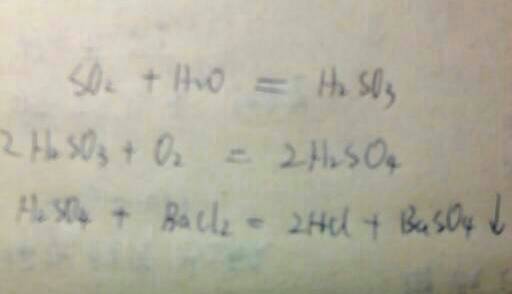 SO₂ + H₂O = H₂SO₃
2H₂SO₃ + O₂ = 2H₂SO₄
H₂SO₄ + BaCl₂ = 2HCl + BaSO₄↓